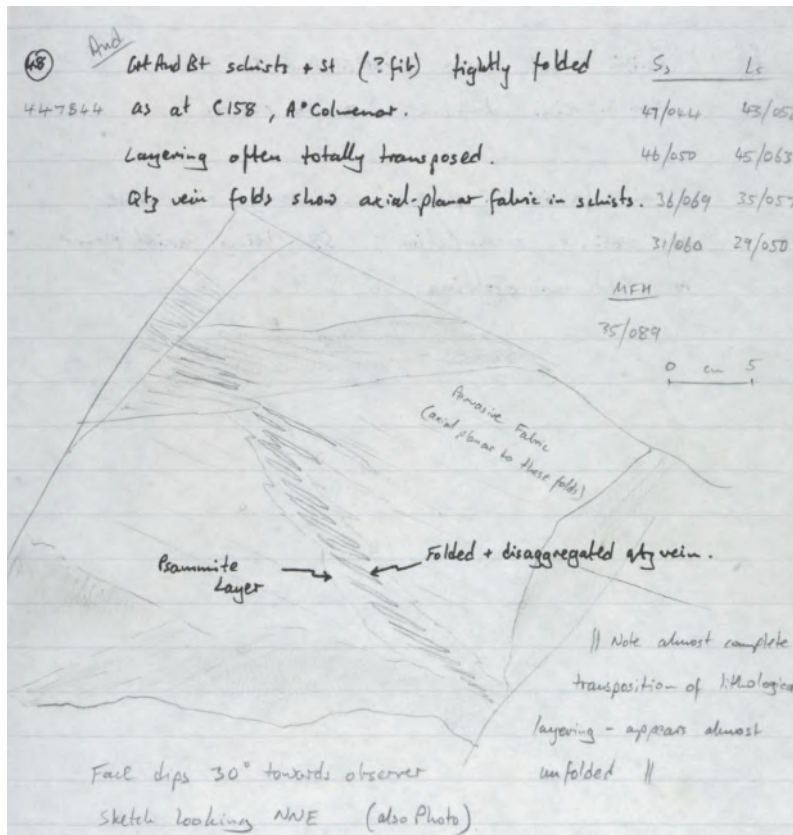 And
48 Grt And Bt schists + st (?fib) tightly folded Ss Ls
447844 as at C158, Aº Colmenar. 47/044 43/052
Layering often totally transposed. 46/050 45/063
Qtz vein folds show axial-planar fabric in schists. 36/069 35/057
31/060 29/050
MFH
35/089
0 cm 5
Pervasive Fabric
(axial planar to these folds)
Psammite
Layer
Folded + disaggregated qtz vein.
|| Note almost complete
transposition of lithologica
layering - appears almost
unfolded ||
Face dips 30° towards observer
Sketch looking NNE (also Photo)